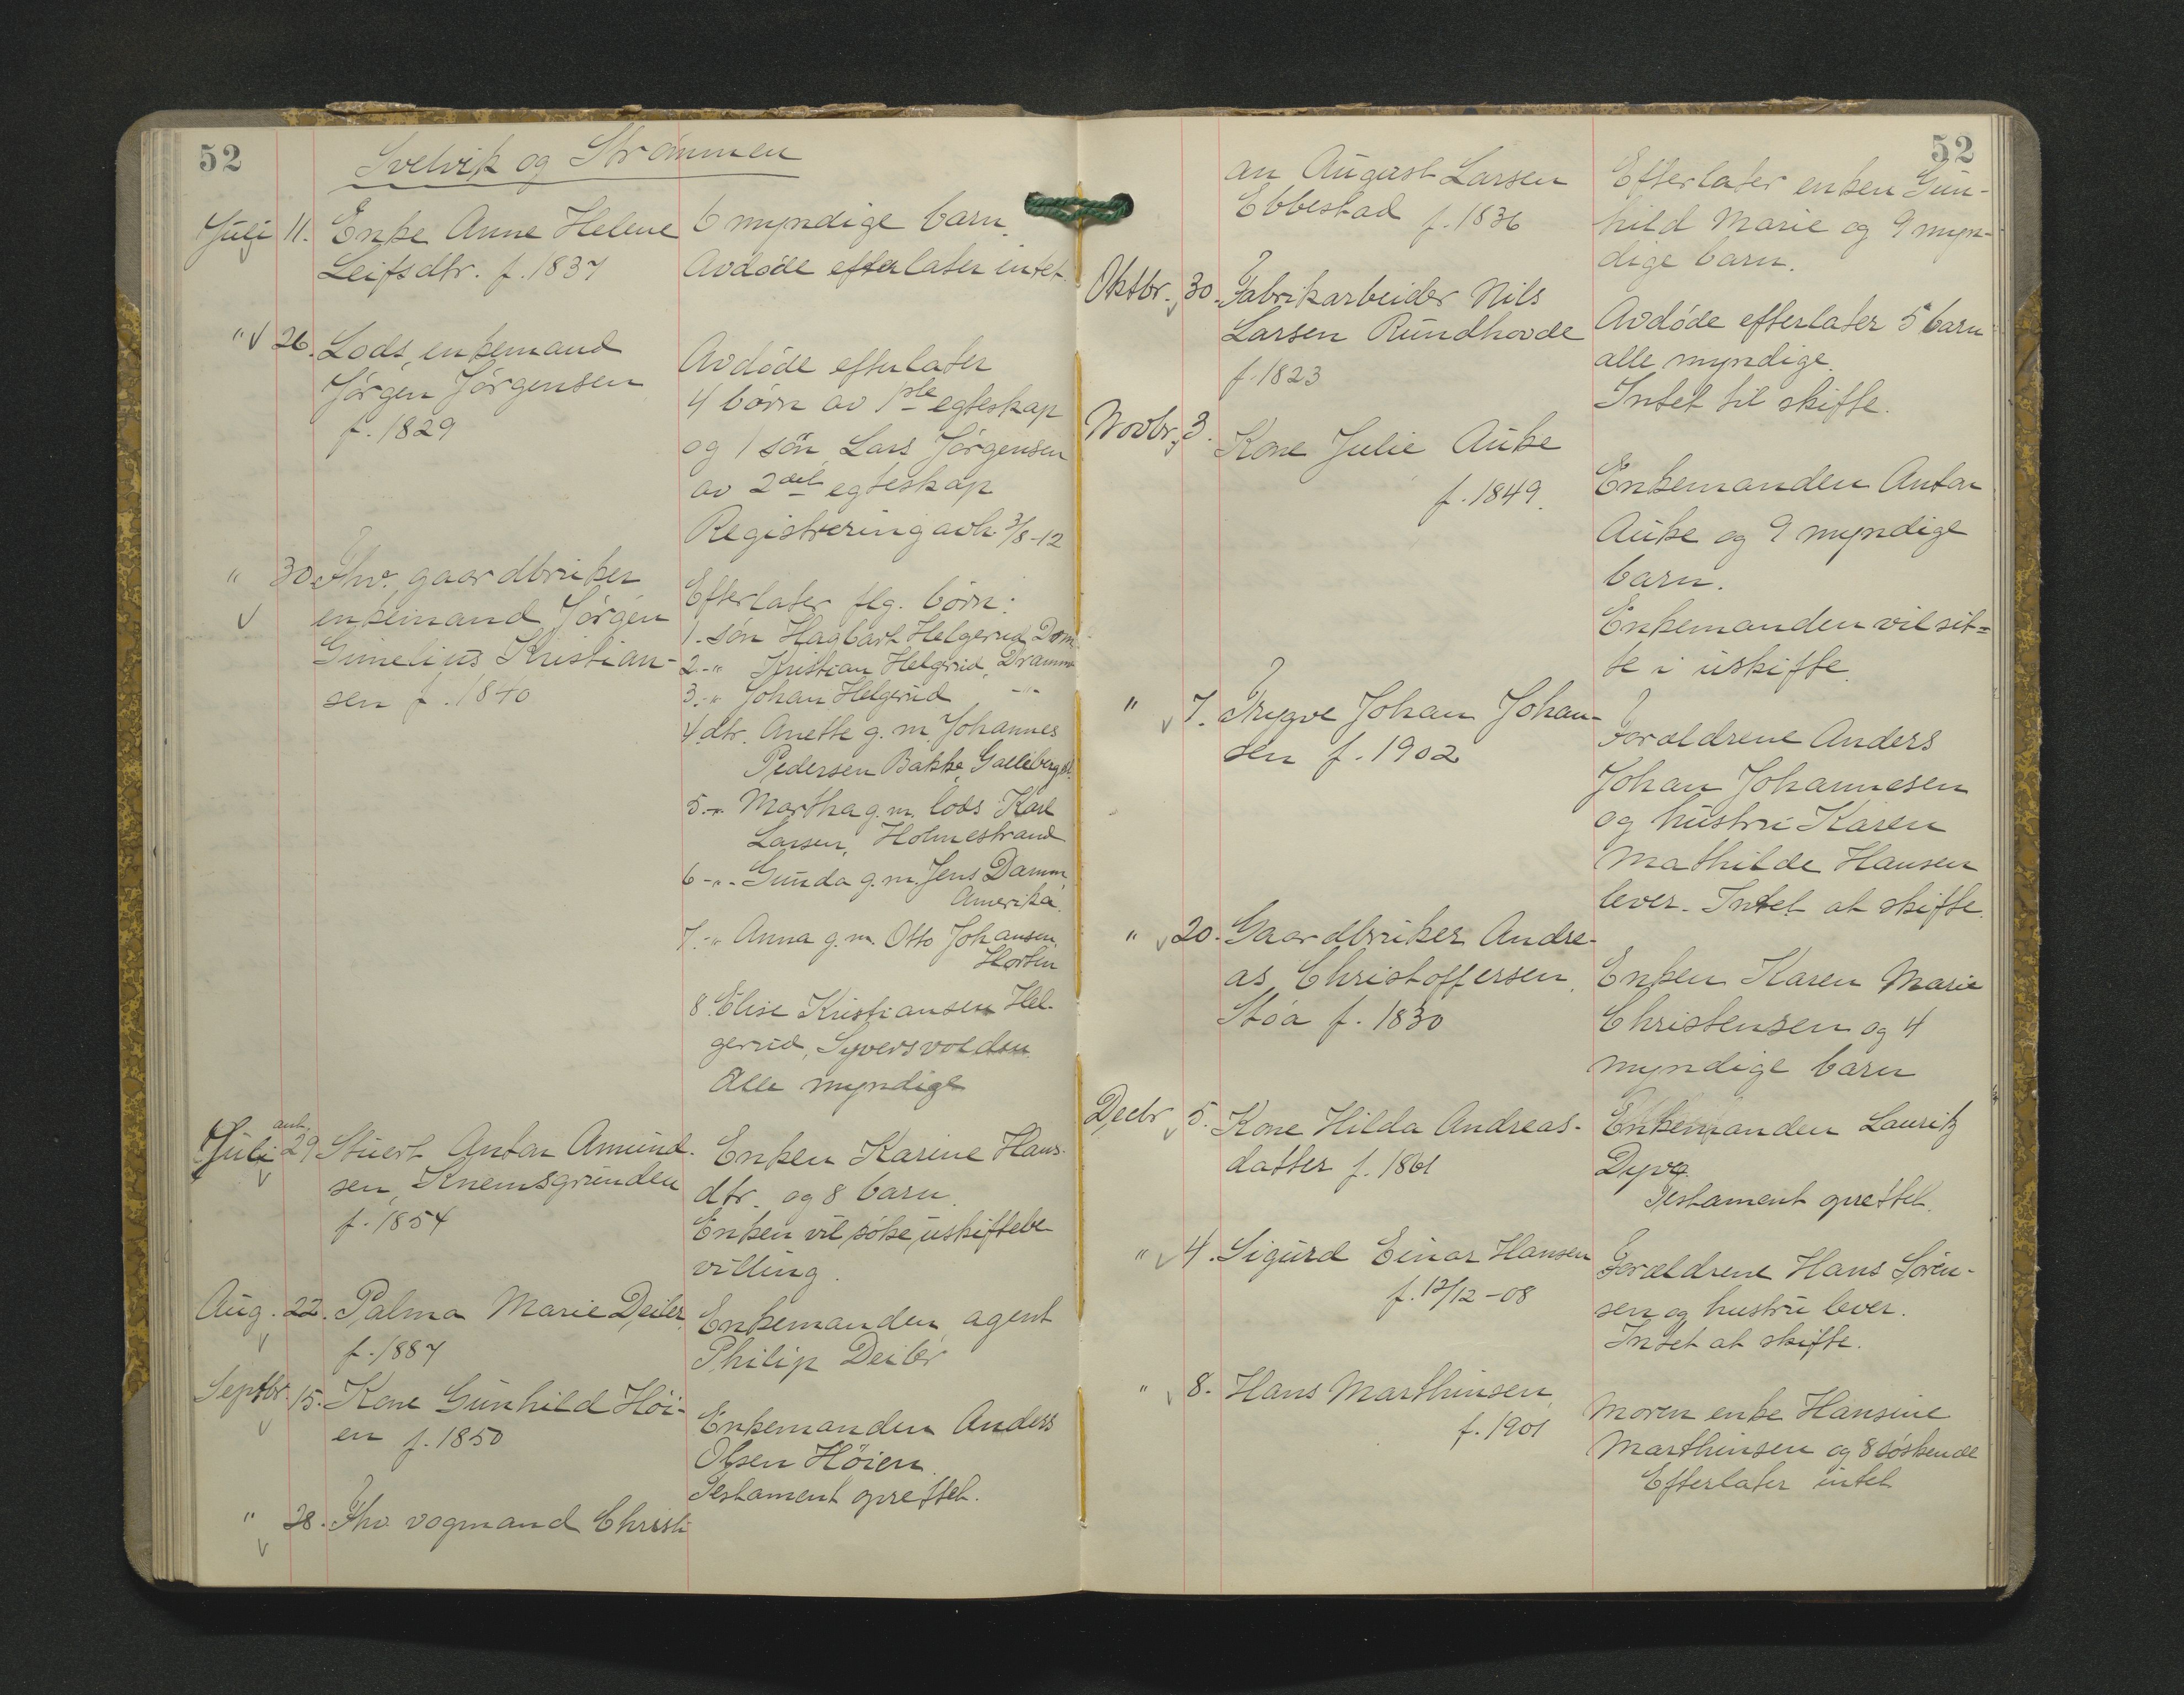 52
Svelvik og Strømmen
Juli 11. Enke Anne Helene
Leifsdtr. f. 1837
6 myndige barn.
Avdøde efterlater intet.
" 26. Lods, enkemand
Jørgen Jørgensen
f. 1829
Avdøde efterlater
4 børn av 1ste egteskap
og 1 søn Lars Jørgensen
av 2det egteskap
Registrering avh. 3/8-12
" 30. Fhv. gaardbruker
enkemand Jørgen
Gunelius Kristian-
sen f. 1840
Efterlater flg. børn:
1. søn Hagbart Helgerud, Dram.
2. -"- Kristian Helgerud, Dramm
3. -"- Johan Helgerud -"-
4. dtr. Anette g. m. Johannes
Pedersen Bakke, Galleberg st.
5. -"- Martha g. m. lods Karl
Larsen, Holmestrand
6 -"- Gunda g. m. Jens Damm
Amerika.
7. -"- Anna g. m. Otto Johansen,
Horten
8. Elise Kristiansen Hel-
gerud, Syversvolden.
Alle myndige
anh.
Juli 29 Stuert Anton Amund-
sen, Knemsgrunden
f. 1854
Enken Karine Hans-
dtr. og 8 barn.
Enken vil søke uskiftebe
villing.
Aug. 22. Palma Marie Deiler
f. 1887
Enkemanden, agent
Philip Deiler
Septbr. 15. Kone Gunhild Høi-
en f. 1850
Enkemanden Anders
Olsen Høien.
Testament oprettet.
" 28. Fhv. vognmand Christi
52
an August Larsen
Ebbestad f. 1836
Efterlater enken Gun-
hild Marie og 9 myn-
dige barn.
Oktbr. 30. Fabrikarbeider Nils
Larsen Rundhovde
f. 1823
Avdøde efterlater 5 barn
alle myndige.
Intet til skifte.
Novbr. 3. Kone Julie Auke
f. 1849.
Enkemanden Anton
Auke og 9 myndige
barn.
Enkemanden vil sit=
te i uskifte.
" 7. Trygve Johan Johan-
sen f. 1902
Forældrene Anders
Johan Johannesen
og hustru Karen
Mathilde Hansen
lever. Intet at skifte.
" 20. Gaardbruker Andre-
as Christoffersen,
Stoa f. 1830
Enken Karen Marie
Christensen og 4
myndige barn
Decbr 5. Kone Hilda Andreas-
datter f. 1861
Enkemanden Lauritz
Dyve.
Testament oprettet.
" 4. Sigurd Einar Hansen
f. 12/12-08
Forældrene Hans Søren-
sen og hustru lever.
Intet at skifte.
" 8. Hans Marthinsen,
f. 1901
Moren enke Hansine
Marthinsen og 8 søskende
Efterlater intet